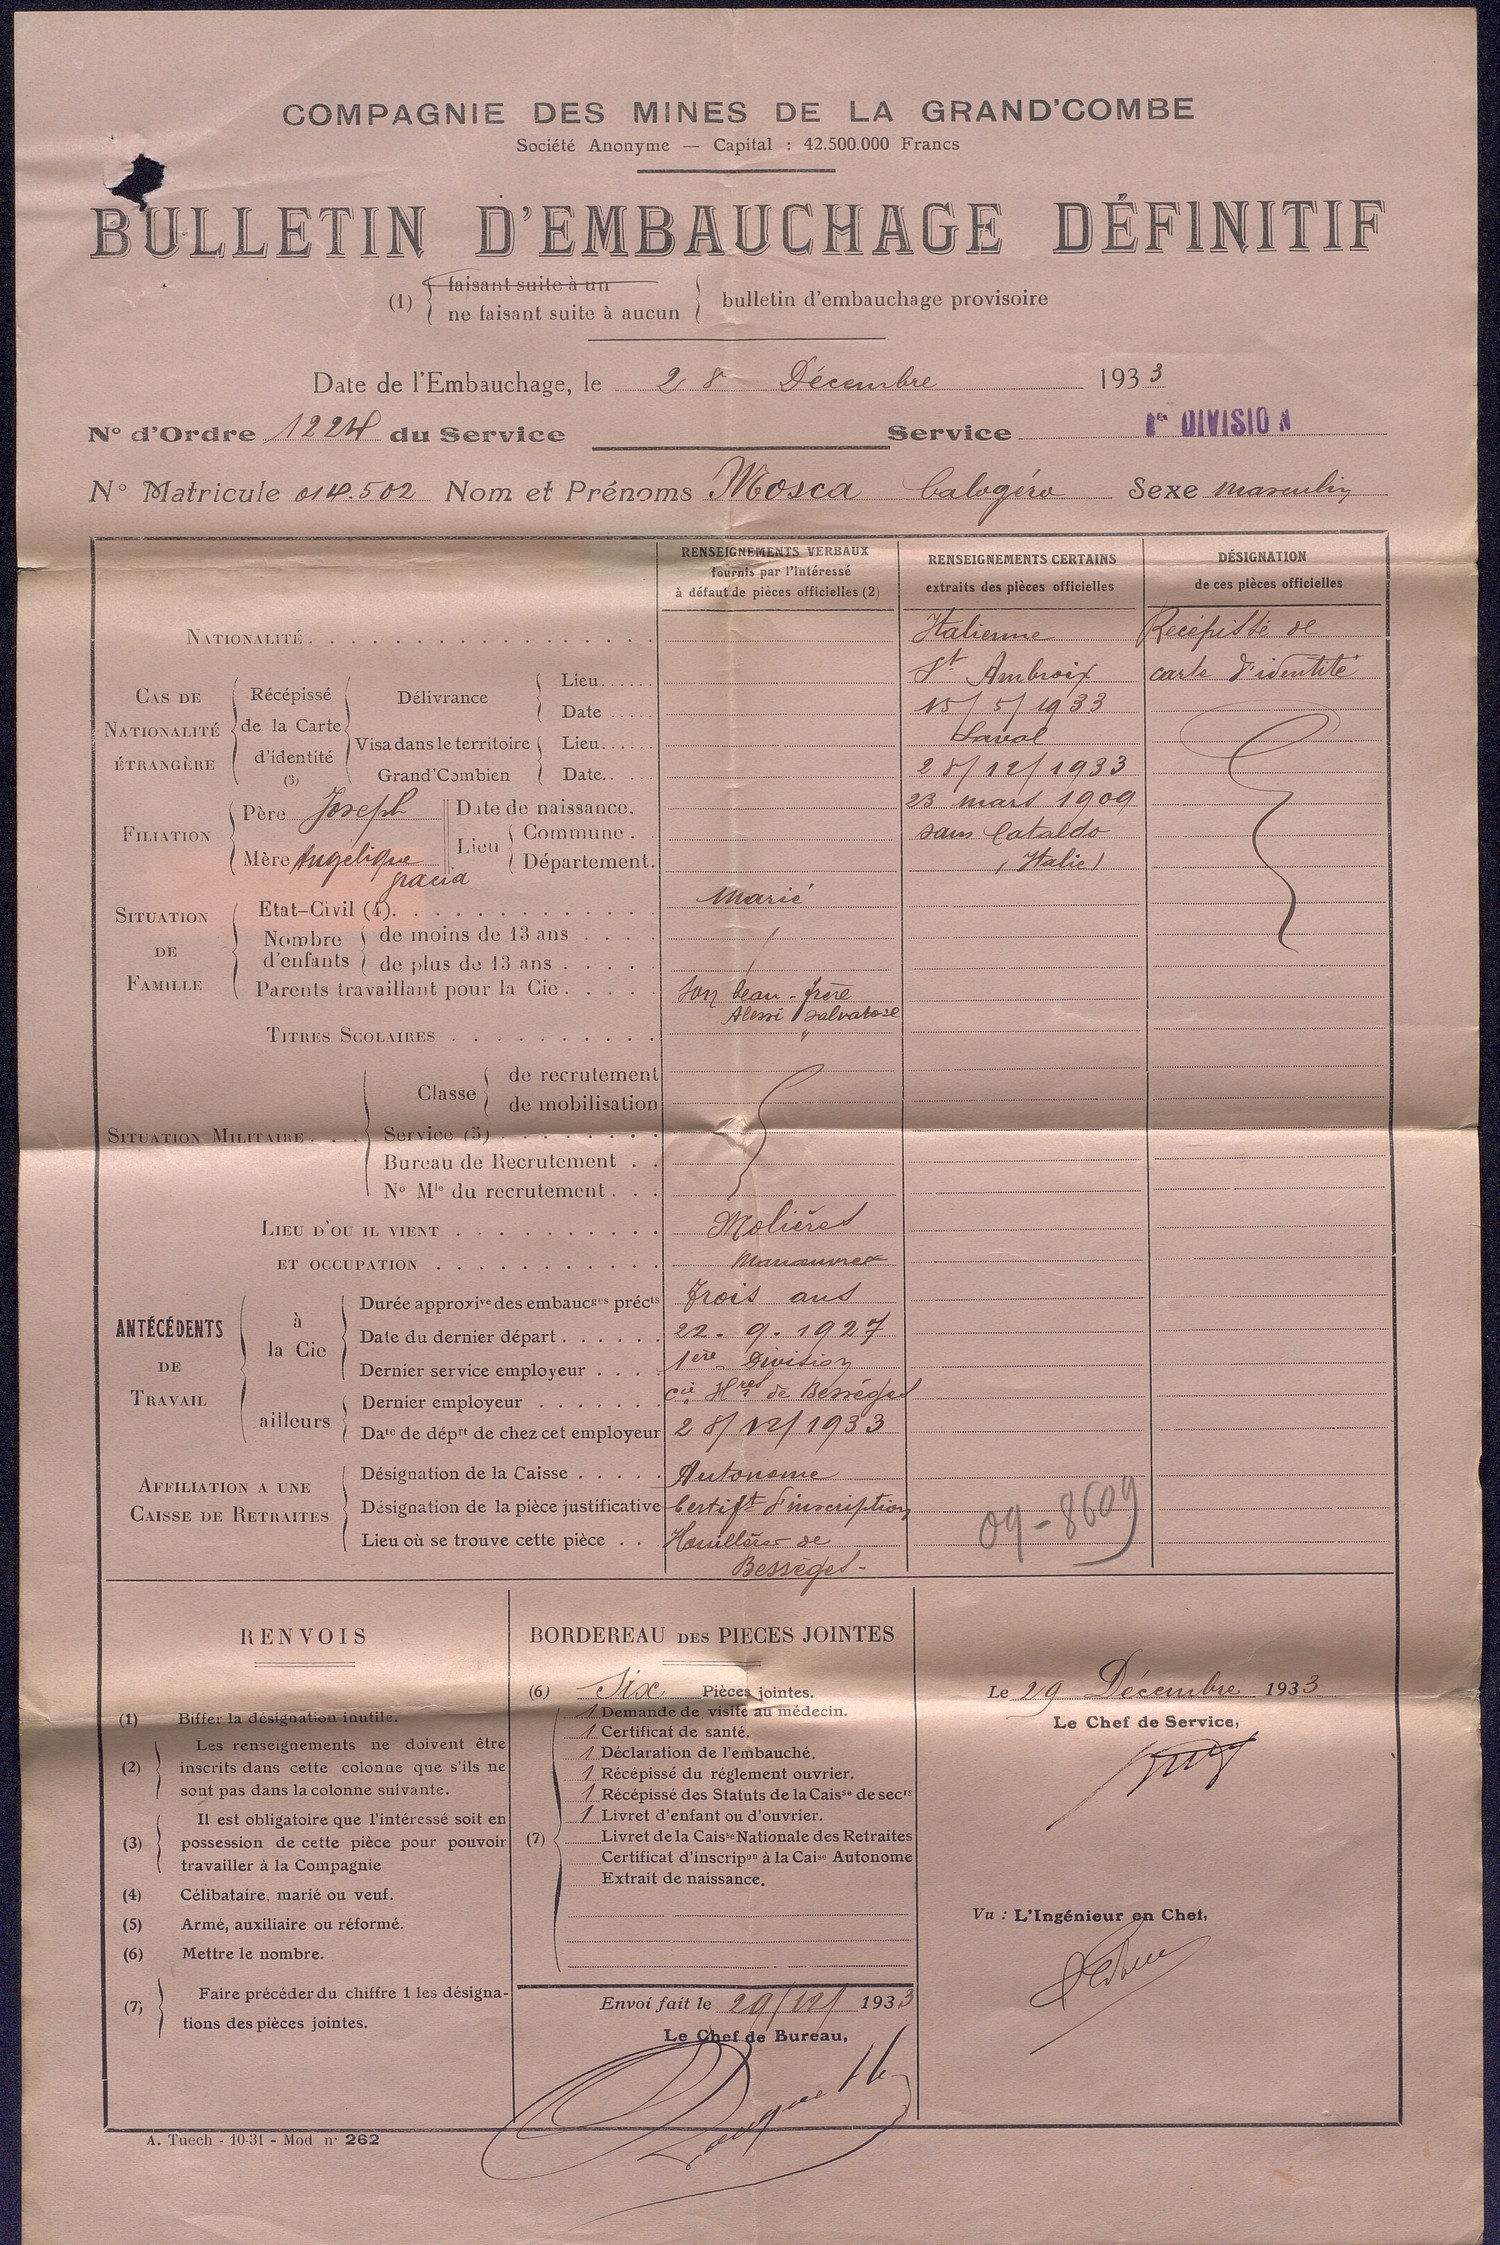 COMPAGNIE DES MINES DE LA GRAND'COMBE
Société Anonyme — Capital : 42.500.000 Francs
BULLETIN D'EMBAUCHAGE DÉFINITIF
(1) faisant suite à un
ne faisant suite à aucun
bulletin d'embauchage provisoire
Date de l'Embauchage, le 28 Décembre 1933
N° d'Ordre 1224 du Service Service 1re DIVISION
N° Matricule 014.502 Nom et Prénoms Mosca Calogéro Sexe masculin
RENSEIGNEMENTS VERBAUX
fournis par l'intéressé
à défaut de pièces officielles (2)
RENSEIGNEMENTS CERTAINS
extraits des pièces officielles
DÉSIGNATION
de ces pièces officielles
NATIONALITÉ Italienne Récépissé de
CAS DE NATIONALITÉ ÉTRANGÈRE
Récépissé de la Carte d'identité (3)
Délivrance Lieu St Ambroix carte d'identité
Date 15/5/1933
Visa dans le territoire Grand'Combien
Lieu Laval
Date 28/12/1933
FILIATION Père Joseph
Mère Angélique gracia
Date de naissance. 23 mars 1909
Lieu Commune. san Cataldo
Département. (Italie)
SITUATION DE FAMILLE
Etat-Civil (4) marié
Nombre d'enfants de moins de 13 ans
de plus de 13 ans
Parents travaillant pour la Cie Son beau-frère
Alessi Salvatore
TITRES SCOLAIRES "
SITUATION MILITAIRE
Classe de recrutement
de mobilisation
Service (5)
Bureau de Recrutement
N° Mle du recrutement
LIEU D'OU IL VIENT Molières
ET OCCUPATION Manoeuvre
ANTÉCÉDENTS DE TRAVAIL
à la Cie
Durée approxive des embaucgus préctˢ Trois ans
Date du dernier départ 22-9-1927
Dernier service employeur 1ère Division
ailleurs
Dernier employeur Cie Hres de Bességes
Date de déprt de chez cet employeur 28/12/1933
AFFILIATION A UNE CAISSE DE RETRAITES
Désignation de la Caisse Autonome
Désignation de la pièce justificative Certift d'inscription
Lieu où se trouve cette pièce Houillères de
Bességes-
09-8609
RENVOIS
(1) Biffer la désignation inutile.
(2) Les renseignements ne doivent être
inscrits dans cette colonne que s'ils ne
sont pas dans la colonne suivante.
(3) Il est obligatoire que l'intéressé soit en
possession de cette pièce pour pouvoir
travailler à la Compagnie
(4) Célibataire, marié ou veuf.
(5) Armé, auxiliaire ou réformé.
(6) Mettre le nombre.
(7) Faire précéder du chiffre 1 les désigna-
tions des pièces jointes.
BORDEREAU DES PIECES JOINTES
(6) Six Pièces jointes.
(7)
1 Demande de visite au médecin.
1 Certificat de santé.
1 Déclaration de l'embauché.
1 Récépissé du réglement ouvrier.
1 Récépissé des Statuts de la Caisse de secrs
1 Livret d'enfant ou d'ouvrier.
Livret de la Caisse Nationale des Retraites
Certificat d'inscripon à la Caise Autonome
Extrait de naissance.
Envoi fait le 29/12/1933
Le Chef de Bureau,
Le 29 Décembre 1933
Le Chef de Service,
Vu : L'Ingénieur en Chef,
A. Tuech - 10-31 - Mod n° 262